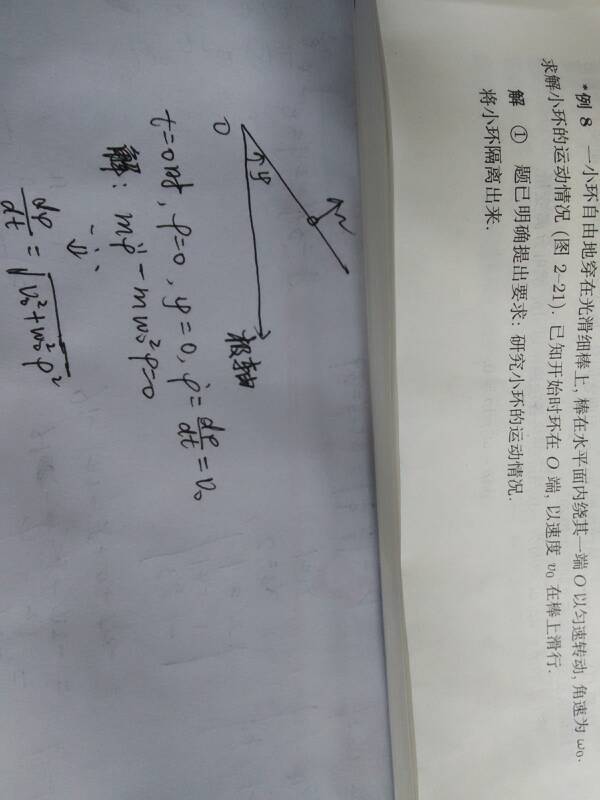 *例 8 一小环自由地穿在光滑细棒上, 棒在水平面内绕其一端 O 以匀速转动, 角速为 ω₀.
求解小环的运动情况 (图 2-21). 已知开始时环在 O 端, 以速度 v₀ 在棒上滑行.
解 ① 题已明确提出要求: 研究小环的运动情况.
将小环隔离出来.
N
φ
O
极轴
t=0时, ρ=0, φ=0, ρ̇=dρ/dt=v₀
解: mρ̈-mω₀²ρ=0
dρ/dt=√(v₀²+ω₀²ρ²)